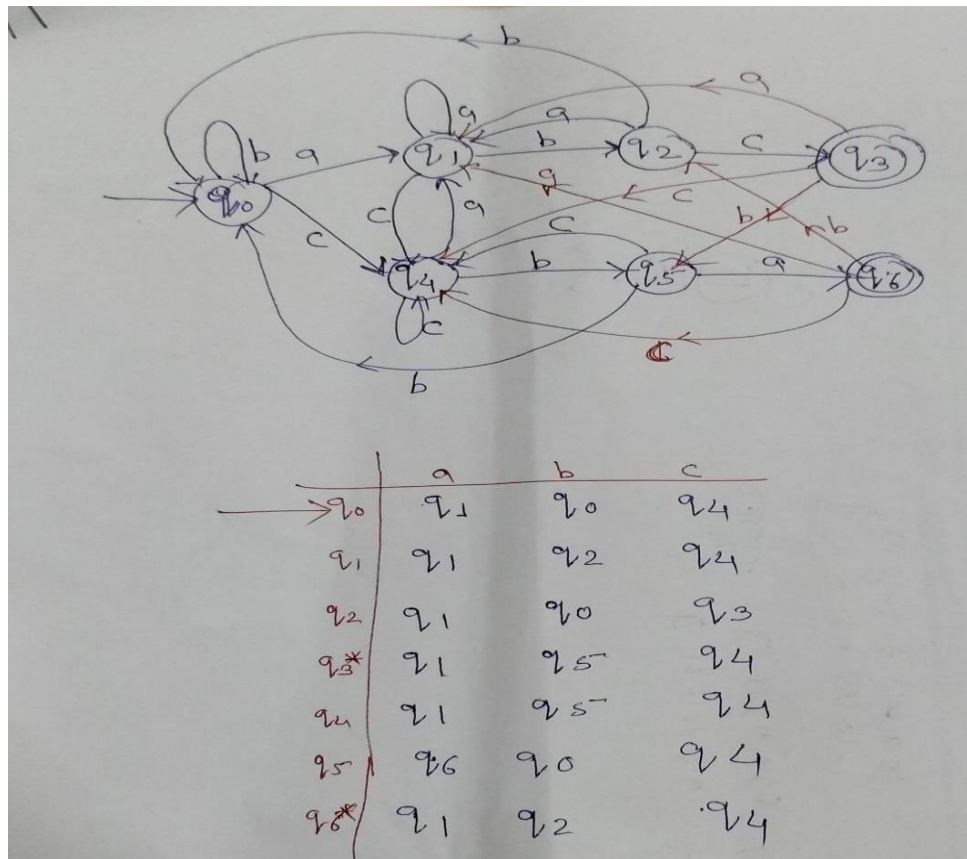 b
a
b
a
a
a
b
c
q1
q2
q3
b
q0
c
a
a
c
c
b
b
c
q4
b
q5
a
q6
c
c
b
a b c
q0 q1 q0 q4
q1 q1 q2 q4
q2 q1 q0 q3
q3* q1 q5 q4
q4 q1 q5 q4
q5 q6 q0 q4
q6* q1 q2 q4